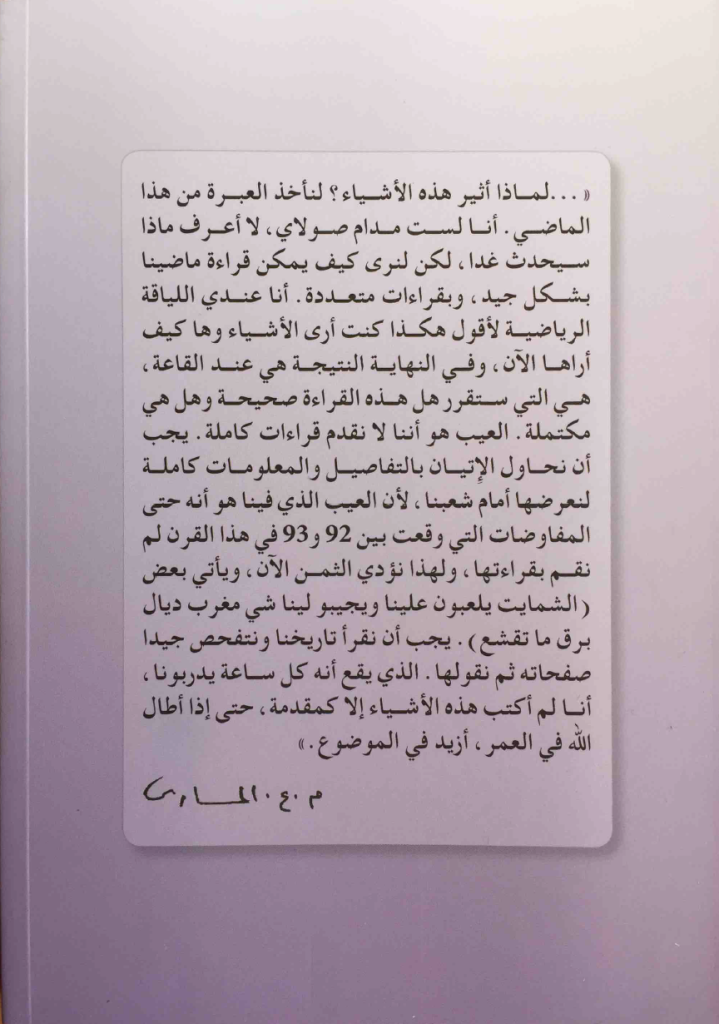 « ...لماذا أثير هذه الأشياء؟ لنأخذ العبرة من هذا
الماضي. أنا لست مدام صولاي، لا أعرف ماذا
سيحدث غدا، لكن لنرى كيف يمكن قراءة ماضينا
بشكل جيد، وبقراءات متعددة. أنا عندي اللياقة
الرياضية لأقول هكذا كنت أرى الأشياء وها كيف
أراها الآن، وفي النهاية النتيجة هي عند القاعة،
هي التي ستقرر هل هذه القراءة صحيحة وهل هي
مكتملة. العيب هو أننا لا نقدم قراءات كاملة. يجب
أن نحاول الإتيان بالتفاصيل والمعلومات كاملة
لنعرضها أمام شعبنا، لأن العيب الذي فينا هو أنه حتى
المفاوضات التي وقعت بين 92 و93 في هذا القرن لم
نقم بقراءتها، ولهذا نؤدي الثمن الآن، ويأتي بعض
(الشمايت يلعبون علينا ويجيبو لينا شي مغرب ديال
برق ما تقشع). يجب أن نقرأ تاريخنا ونتفحص جيدا
صفحاته ثم نقولها. الذي يقع أنه كل ساعة يدربونا،
أنا لم أكتب هذه الأشياء إلا كمقدمة، حتى إذا أطال
الله في العمر، أزيد في الموضوع.»
م.ع.المساري